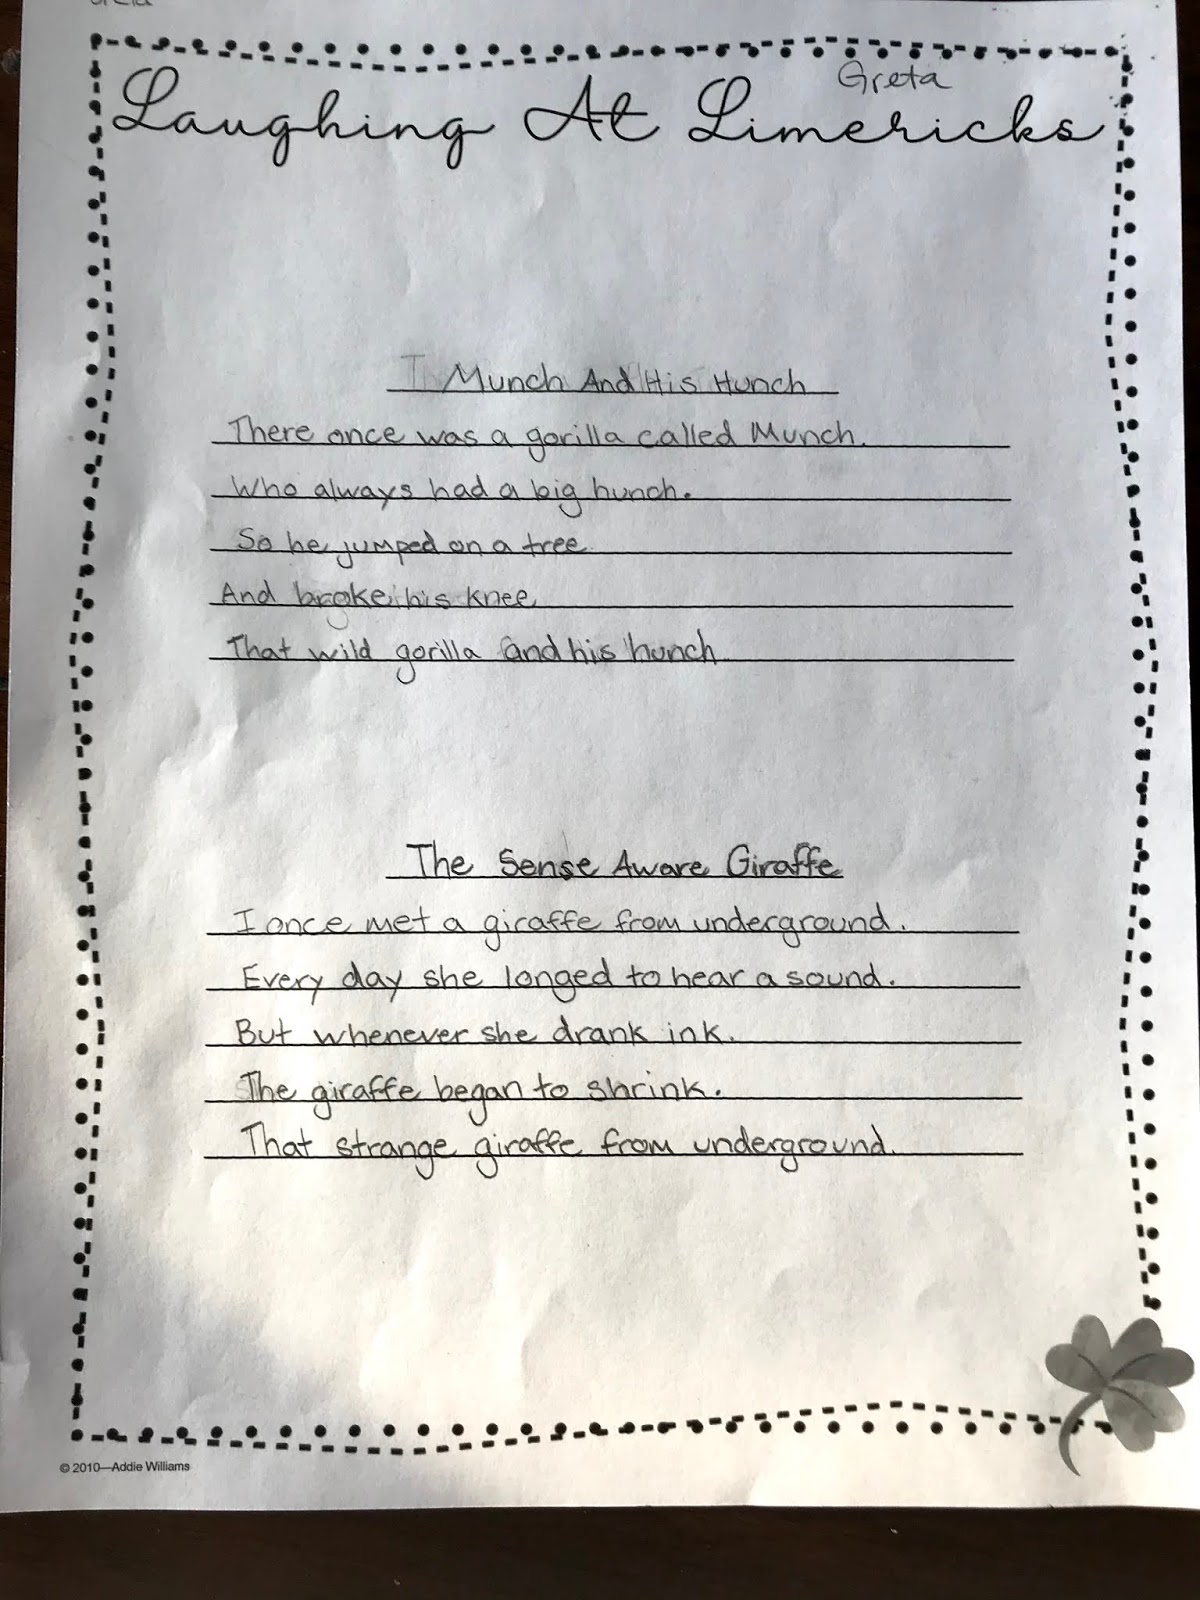 Greta
Laughing At Limericks
Munch And His Hunch
There once was a gorilla called Munch.
Who always had a big hunch.
So he jumped on a tree
And broke his knee
That wild gorilla and his hunch
The Sense Aware Giraffe
I once met a giraffe from underground.
Every day she longed to hear a sound.
But whenever she drank ink.
The giraffe began to shrink.
That strange giraffe from underground.
© 2010—Addie Williams